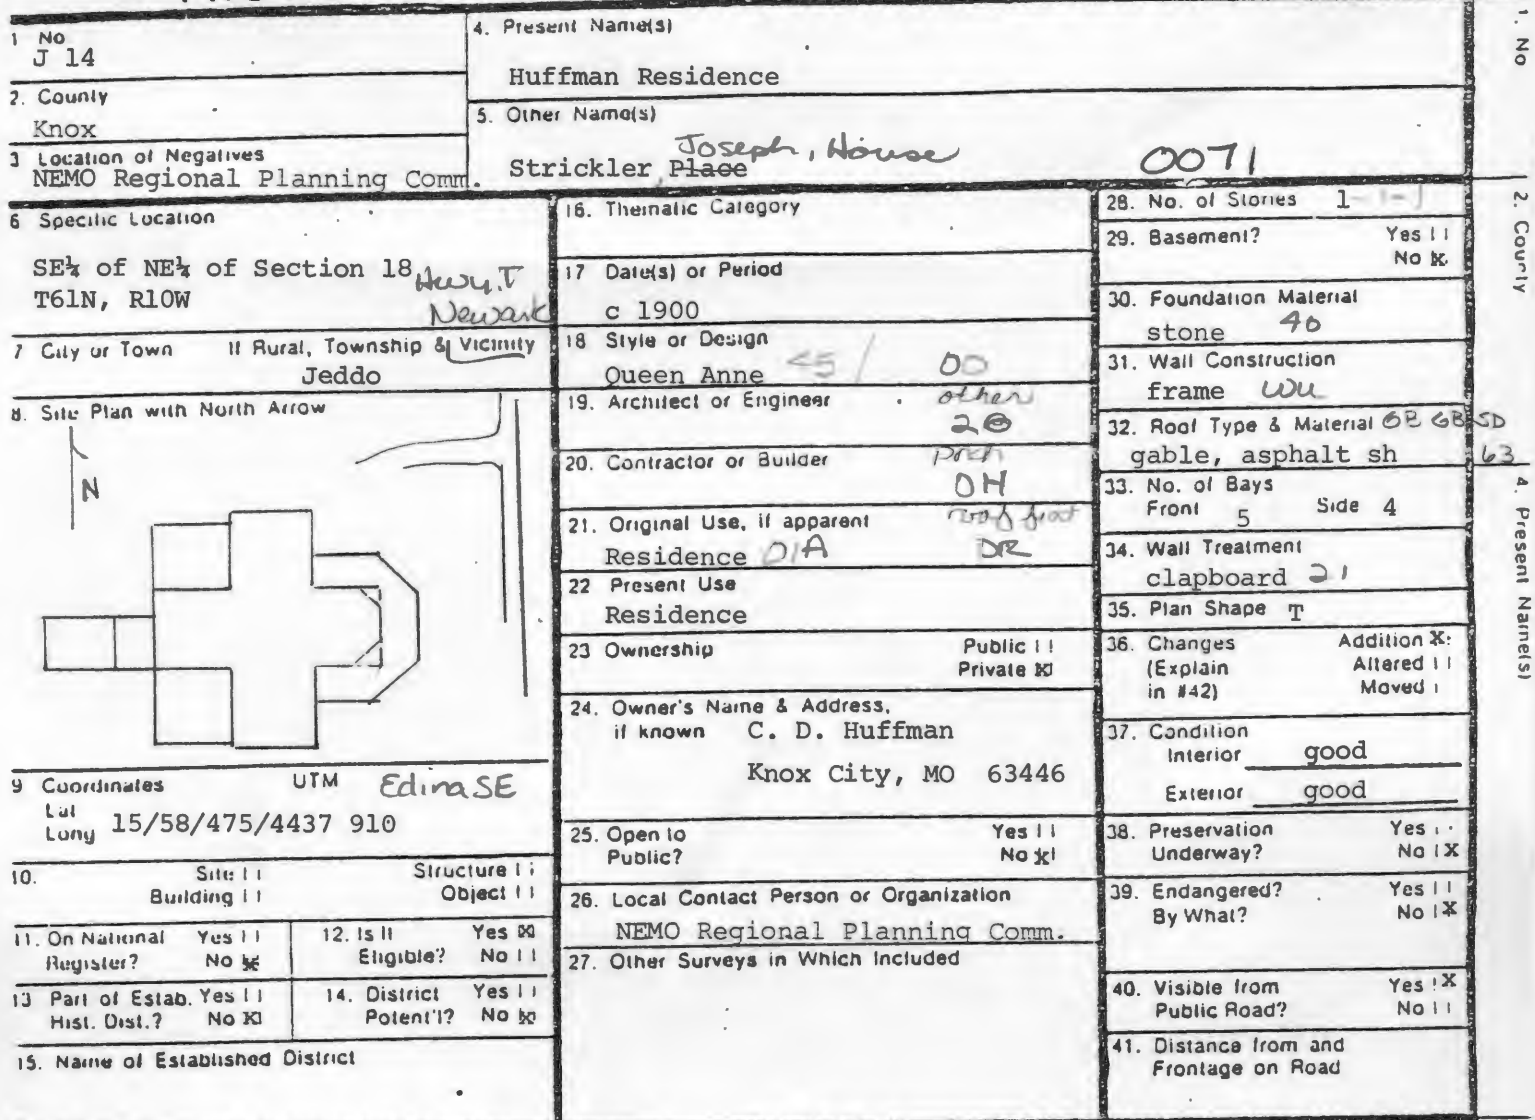 1 No
J 14
2. County
Knox
3 Location of Negatives
NEMO Regional Planning Comm.
4. Present Name(s)
Huffman Residence
5. Other Name(s)
Joseph, House
Strickler, Place
0071
6 Specific Location
SE¼ of NE¼ of Section 18
T61N, R10W
Hwy. T
Newark
7 City or Town If Rural, Township & Vicinity
Jeddo
8. Site Plan with North Arrow
N
9 Coordinates UTM EdinaSE
Lat
Long 15/58/475/4437 910
10. Site Structure
Building Object
11. On National Yes
Register? No X
12. Is It Yes X
Eligible? No
13 Part of Estab. Yes
Hist. Dist.? No X
14. District Yes
Potent'l? No X
15. Name of Established District
16. Thematic Category
17 Date(s) or Period
c 1900
18. Style or Design
Queen Anne 45 / 00
19. Architect or Engineer other
20. Contractor or Builder porch
OH
21. Original Use, if apparent roof
Residence 01A DR
22 Present Use
Residence
23 Ownership Public
Private X
24. Owner's Name & Address,
if known C. D. Huffman
Knox City, MO 63446
25. Open to Yes
Public? No X
26. Local Contact Person or Organization
NEMO Regional Planning Comm.
27. Other Surveys in Which Included
28. No. of Stories 1
29. Basement? Yes
No X
30. Foundation Material
stone 40
31. Wall Construction
frame WU
32. Roof Type & Material GB GB SD
gable, asphalt sh 63
33. No. of Bays
Front 5 Side 4
34. Wall Treatment
clapboard 21
35. Plan Shape T
36. Changes Addition X
(Explain Altered
in #42) Moved
37. Condition
Interior good
Exterior good
38. Preservation Yes
Underway? No X
39. Endangered? Yes
By What? No X
40. Visible from Yes X
Public Road? No
41. Distance from and
Frontage on Road
1. No
2. County
4. Present Name(s)